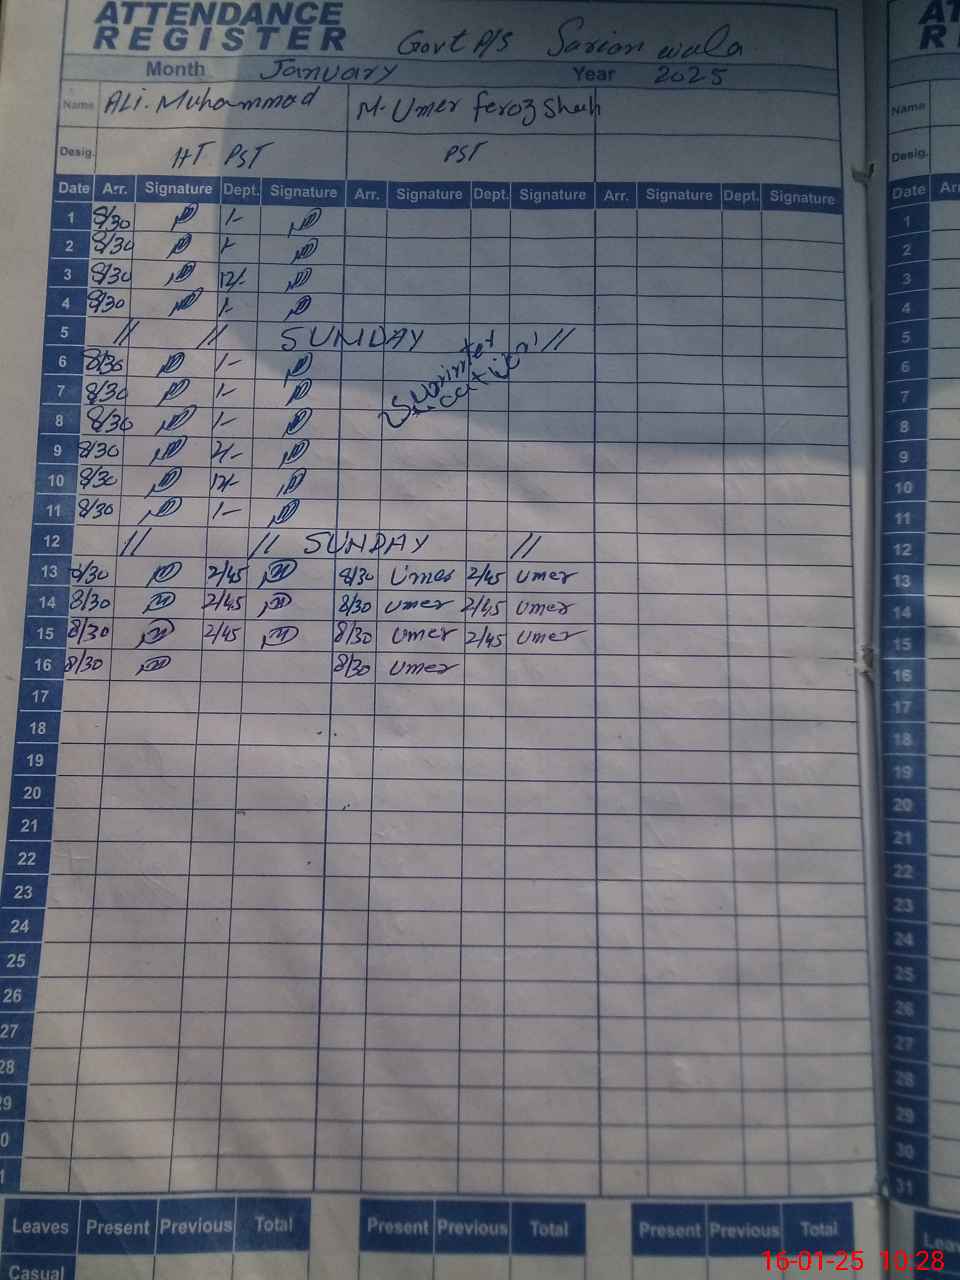 ATTENDANCE
REGISTER Govt P/S Sarian wala
Month January Year 2025
Name ALi. Muhammad M. Umer feroz Shah
Desig. HT PST PST
Date Arr. Signature Dept. Signature Arr. Signature Dept. Signature Arr. Signature Dept. Signature
1 8/30 1-
2 8/30
3 8/30 12/-
4 8/30 1-
5 // // SUNDAY //
winter
vacation
6 8/30 1-
7 8/30 1-
8 8/30 1-
9 8/30
10 8/30 12/-
11 8/30 1-
12 // // SUNDAY //
13 8/30 2/45 8/30 Umer 2/45 Umer
14 8/30 2/45 8/30 Umer 2/45 Umer
15 8/30 2/45 8/30 Umer 2/45 Umer
16 8/30 8/30 Umer
17
18
19
20
21
22
23
24
25
26
27
28
29
0
1
Leaves Present Previous Total Present Previous Total Present Previous Total
Casual
AT
R
Name
Desig.
Date Arr
1
2
3
4
5
6
7
8
9
10
11
12
13
14
15
16
17
18
19
20
21
22
23
24
25
26
27
28
29
30
31
Leav
16-01-25 10:28